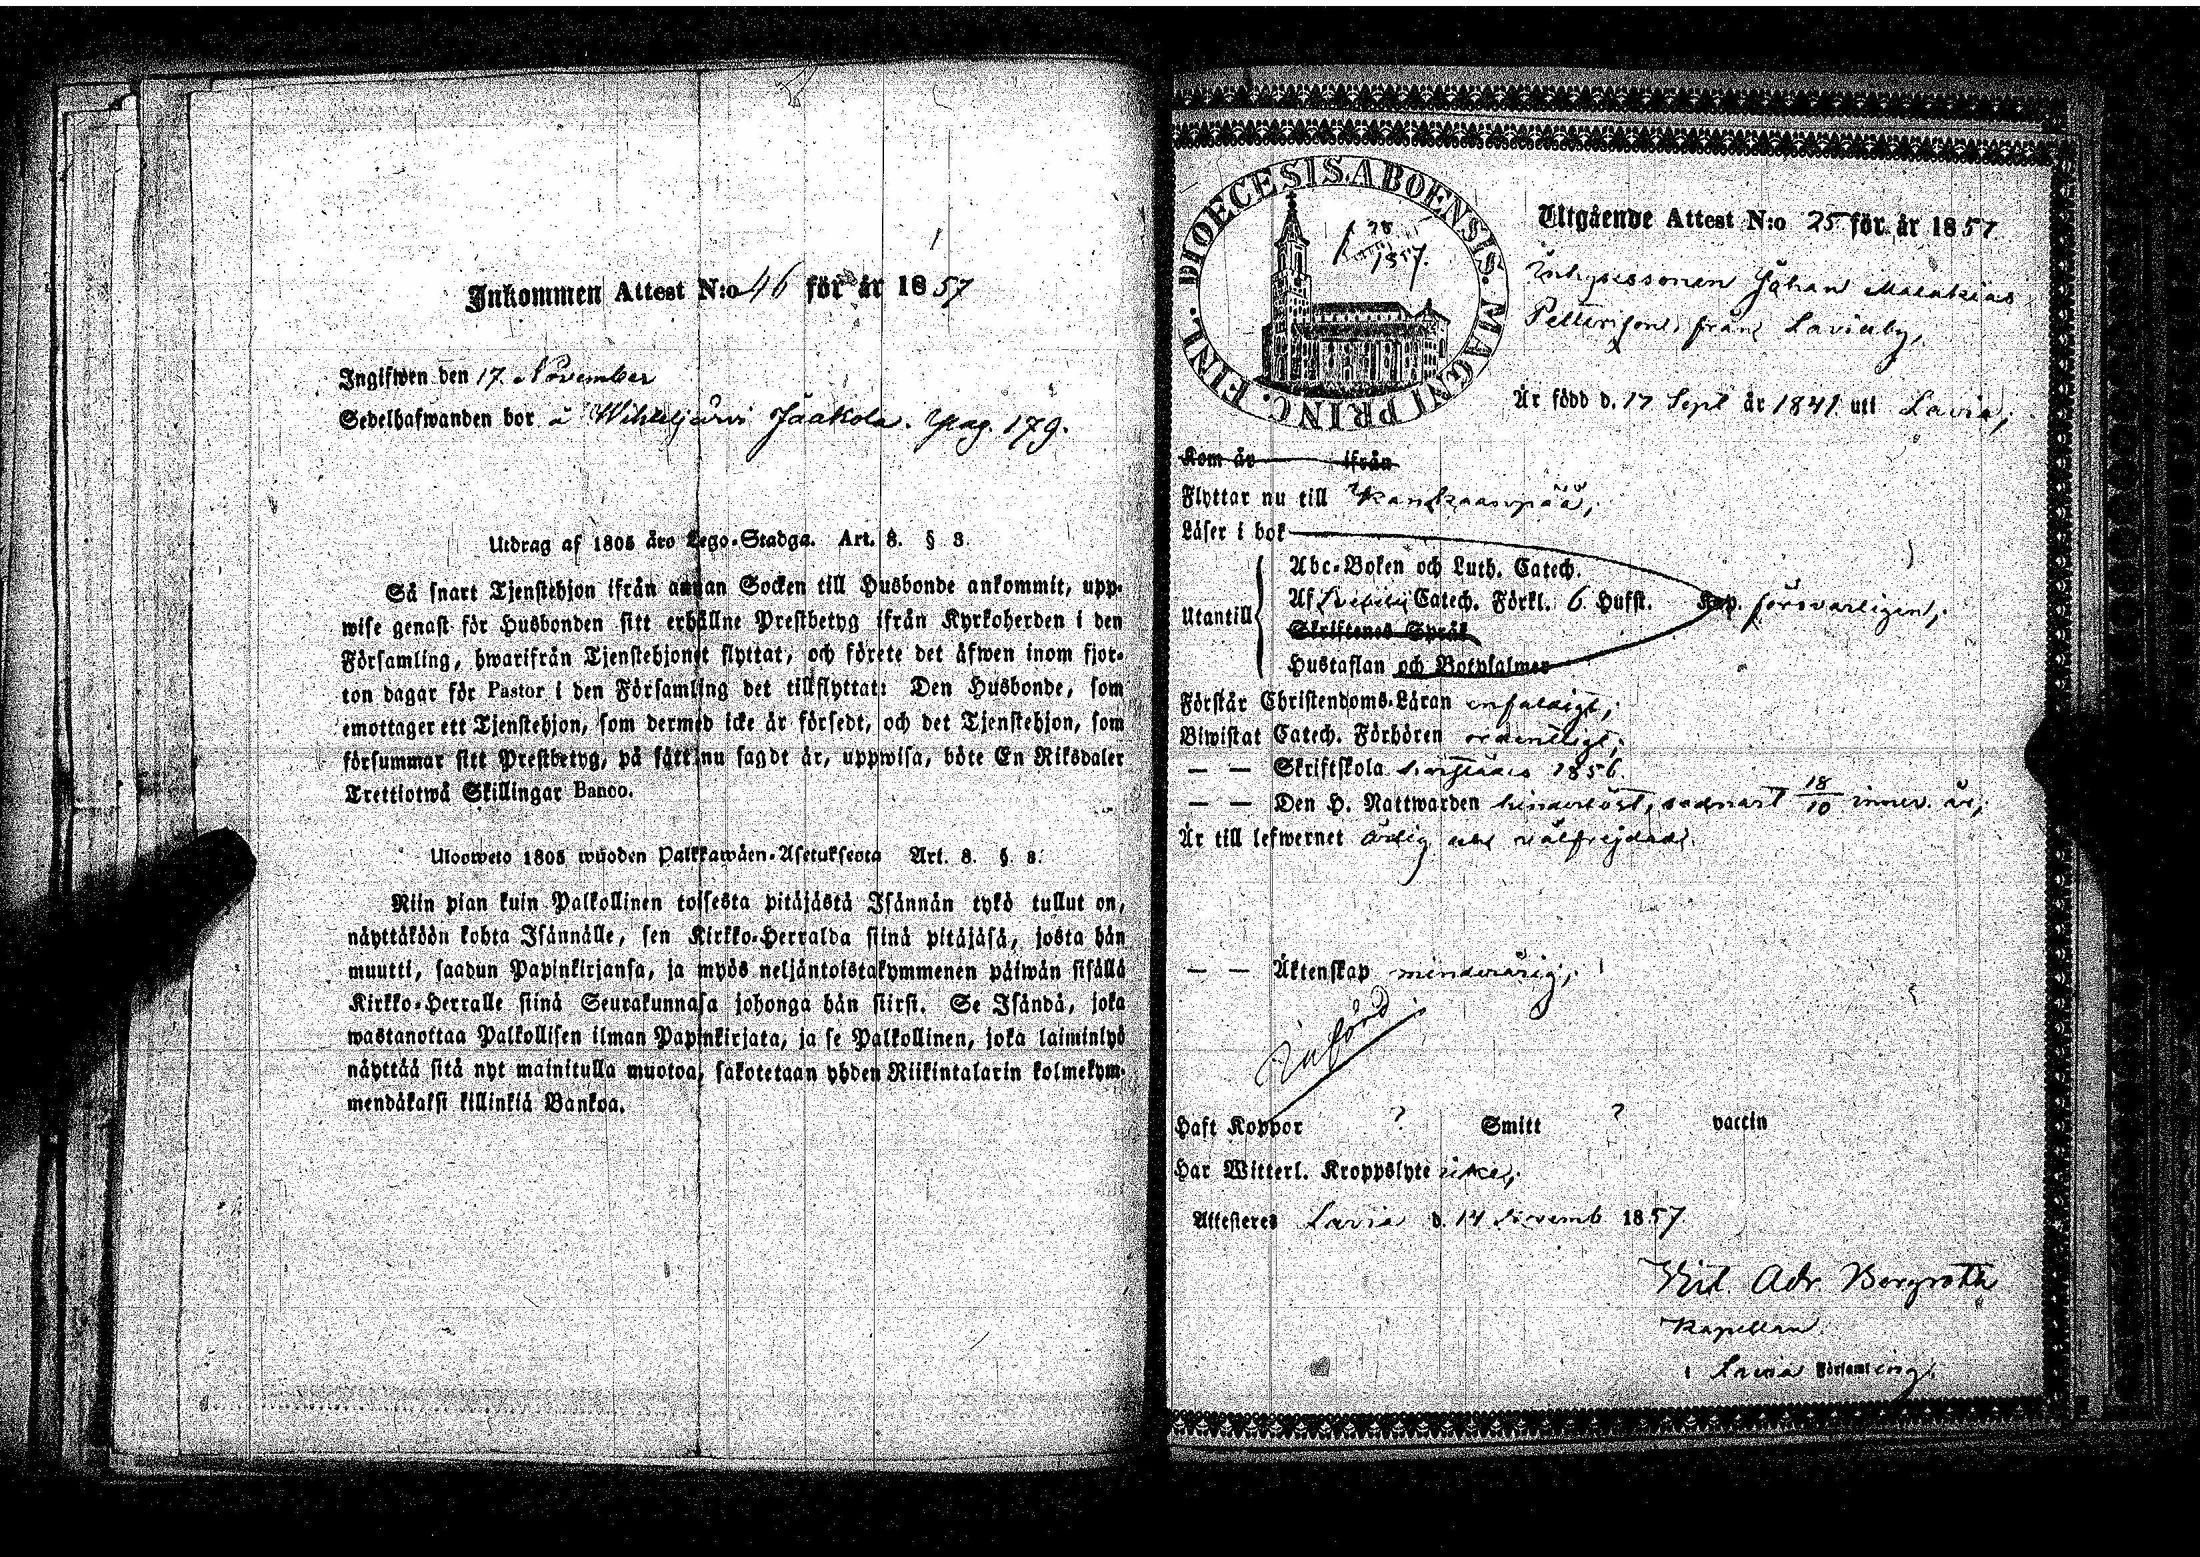 Inkommen Attest N:o 46 för år 1857
Ingifwen den 17. November
Sedelhafwanden bor å Wihteljärvi Jaakola. pag. 179.
Utdrag af 1805 års Lego-Stadga. Art. 8. § 3.
Så snart Tjenstehjon ifrån annan Socken till Husbonde ankommit, upp-
wise genast för Husbonden sitt erhållne Prestbetyg ifrån Kyrkoherden i den
Församling, hwarifrån Tjenstehjonet flyttat, och förete det äfwen inom fjor-
ton dagar för Pastor i den Församling det tillflyttat: Den Husbonde, som
emottager ett Tjenstehjon, som dermed icke är försedt, och det Tjenstehjon, som
försummar sitt Prestbetyg, på sätt nu sagdt är, uppwisa, böte En Riksdaler
Trettiotwå Skillingar Banco.
Ulosweto 1805 wuoden Palkkawäen-Asetuksesta Art. 8. §. 3.
Niin pian kuin Palkollinen toisesta pitäjästä Isännän tykö tullut on,
näyttäköön kohta Isännälle, sen Kirkko-Herralda siinä pitäjäsä, josta hän
muutti, saadun Papinkirjansa, ja myös neljäntoistakymmenen päiwän sisällä
Kirkko-Herralle siinä Seurakunnasa johonga hän siirsi. Se Isändä, joka
wastanottaa Palkollisen ilman Papinkirjata, ja se Palkollinen, joka laiminlyö
näyttää sitä nyt mainitulla muotoa, sakotetaan yhden Riikintalarin kolmekym-
mendäkaksi killinkiä Bankoa.
DIOECESIS. ABOENSIS. MAGNI PRINC. FINL.
Utgående Attest N:o 25 för år 1857
Johan Malakias
Petterson från Laviaby,
Är född d. 17 Sept år 1841 uti Lavia,
Kom år ifrån
Flyttar nu till Kankaanpää,
Läser i bok
Utantill
Abc-Boken och Luth. Catech.
Af Svebilii Catech. Förkl. 6 Hufst. Kap. försvarligen,
Skriftenes Språk
Hustaflan och Botpsalmer
Förstår Christendoms-Läran enfaldigt,
Biwistat Catech. Förhören ordentligt,
— — Skriftskola 1856
— — Den H. Nattwarden hinderlöst, sednast 18/10 innev. år,
Är till lefwernet ärlig och välfrejdad.
— — Äktenskap minderårig,
Införd
Haft Koppor ? Smitt ? vaccin
Har Witterl. Kroppslyte icke,
Attesteras Lavia d. 14 Novemb 1857
Adr. Bergroth
Kapellan
i Lavia Församling.